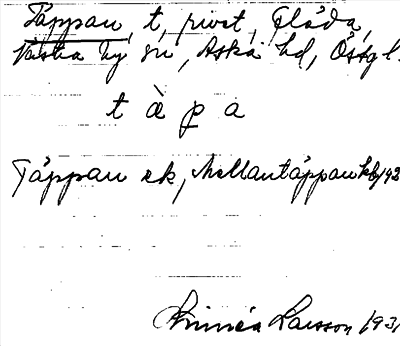 Täppan, t, privat, Fläda,
Västra Ny sn, Aska hd, Östgl.
t à p a
Täppan ek, Mellantäppan kb/92
Linnéa Larsson 1931